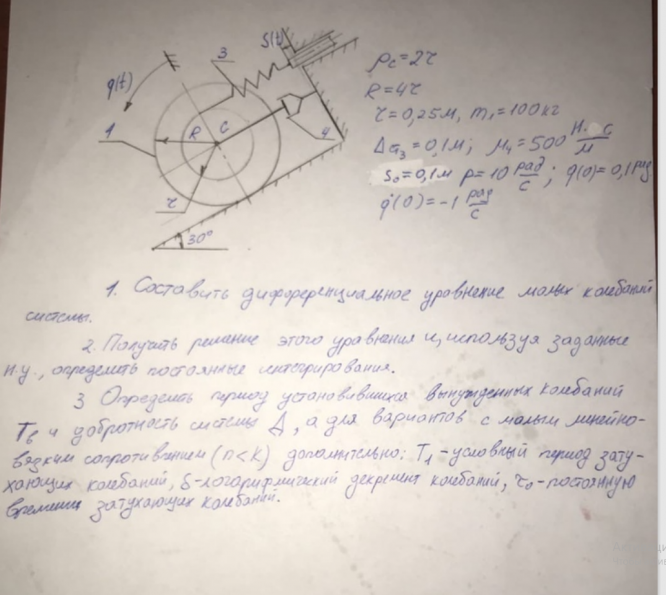 3
S(t)
φ(t)
1
R
C
4
r
30°
ρc = 2r
R = 4r
r = 0,25м, m₁ = 100кг
Δст₃ = 0,1м; μ₄ = 500 Н·с/м
S₀ = 0,1м p = 10 рад/с; φ(0) = 0,1рад
φ̇(0) = -1 рад/с
1. Составить дифференциальное уравнение малых колебаний
системы.
2. Получить решение этого уравнения и, используя заданные
н.у., определить постоянные интегрирования.
3 Определить период установившихся вынужденных колебаний
Tв и добротность системы Δ, а для вариантов с малым линейно-
вязким сопротивлением (n<k) дополнительно: T₁-условный период зату-
хающих колебаний, δ-логарифмический декремент колебаний, τ₀-постоянную
времени затухающих колебаний.